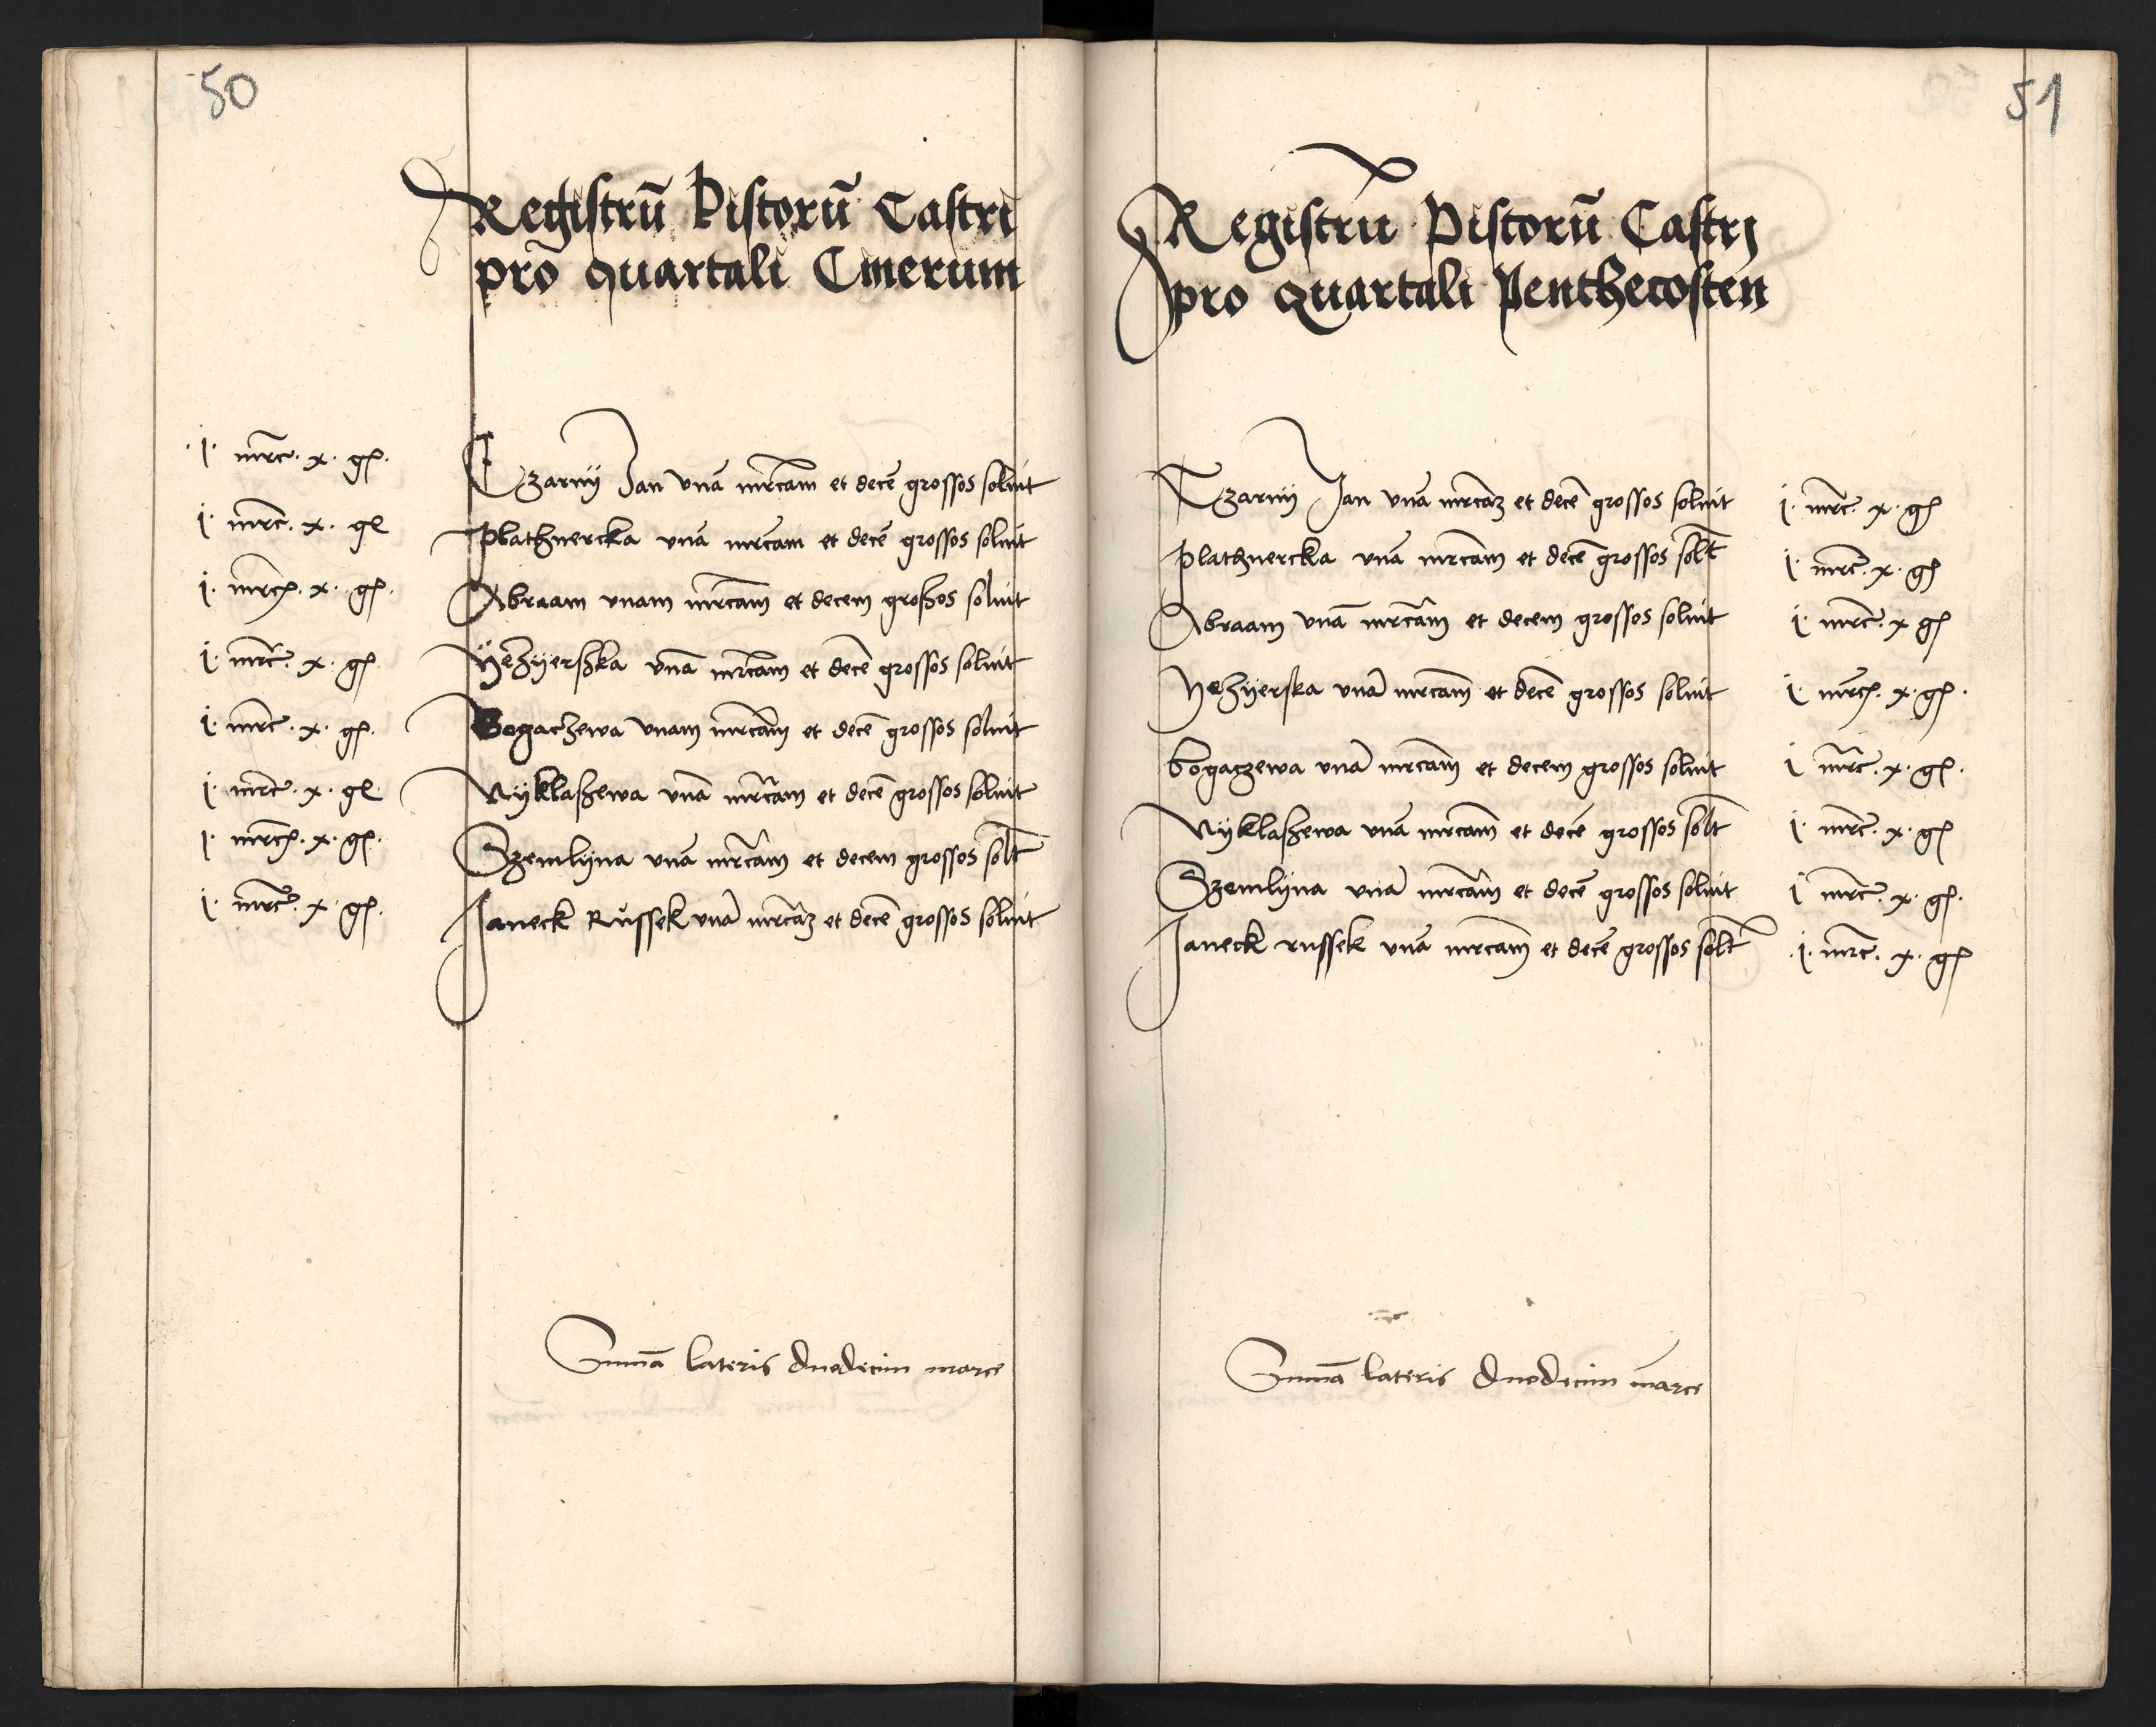 50
Registrū Pistorū Castri
pro quartali Cinerum
·j· mrc̄· x· gʳ·
Czarny Jan vnā mrcam et decē grossos soluit
j· mrc̄· x· gʳ
Plathnercka vnā mrcam et decē grossos soluit
j· mrc̄· x· gʳ·
Abraam vnam mrcam et decem großos soluit
j· mrc̄· x· gʳ
Yeżÿerßka vnā mrcam et decē grossos soluit
j· mrc̄· x· gʳ·
Bogaczewa vnam mrcam et decē grossos soluit
j· mrc̄· x· gʳ
Nyklaßewa vnā mrcam et decē grossos soluit
j· mrc̄· x· gʳ·
Szemlyna vnā mrcam et decem grossos solt̄
j· mrc̄· x· gʳ·
Janeck Růssek vnā mrcaȝ et decē grossos soluit
Sum̄a lateris duodecim marce
51
Registrū Pistorū Castrj
pro quartali Penthecosten
Czarny Jan vnā mrcaȝ et decē grossos soluit j· mrc̄· x· gʳ
Plathnercka vnā mrcam et decē grossos solt̄ j· mrc̄· x· gʳ
Abraam vnā mrcam et decem grossos soluit j· mrc̄· x gʳ
Yeżÿerska vnā mrcam et decē grossos soluit j· mrc̄· x· gʳ·
bogaczewa vnā mrcam et decem grossos soluit j mrc̄· x· gʳ·
Nyklaßewa vnā mrcam et decē grossos solt̄ j· mrc̄· x· gʳ
Szemlyna vnā mrcam et decē grossos soluit j mrc̄· x· gʳ·
Janeck russek vnā mrcam et decē grossos solt̄ ·j· mrc̄· x· gʳ
Sum̄a lateris duodecim marce